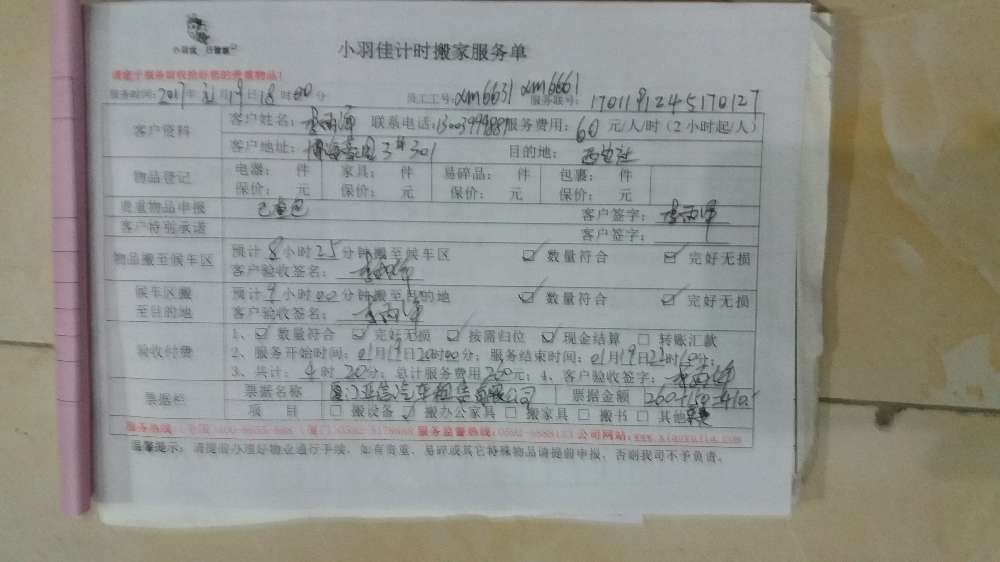 小羽佳
小羽佳计时搬家服务单
请您于服务前收拾好您的贵重物品！
服务时间：2017年 月19日18时00分 员工工号：xm6631 xm6661 服务联号：1701191245170127
客户资料
客户姓名： 联系电话： 服务费用：60元/人/时（2小时起/人）
客户地址： 3# 301 目的地：
物品登记
电器： 件 家具： 件 易碎品： 件 包裹： 件
保价： 元 保价： 元 保价： 元 保价： 元
贵重物品申报 客户签字：
客户特别承诺 客户签字：
物品搬至候车区
预计8小时25分钟搬至候车区 数量符合 完好无损
客户验收签名：
候车区搬至目的地
预计9小时00分钟搬至目的地 数量符合 完好无损
客户验收签名：
验收付费
1、 数量符合 完好无损 按需归位 现金结算 转账汇款
2、服务开始时间：01月19日20时00分；服务结束时间：01月19日 时10分；
3、共计：4时20分；总计服务费用260元；4、客户验收签字：
票据栏
票据名称 厦门亚信汽车租赁有限公司 票据金额 260+150=410
项 目 搬设备 搬办公家具 搬家具 搬书 其他
服务热线： 服务监督热线： 公司网站：www.xiaoyujia.com
温馨提示：请提前办理好物业通行手续，如有贵重、易碎或其它特殊物品请提前申报，否则我司不予负责。